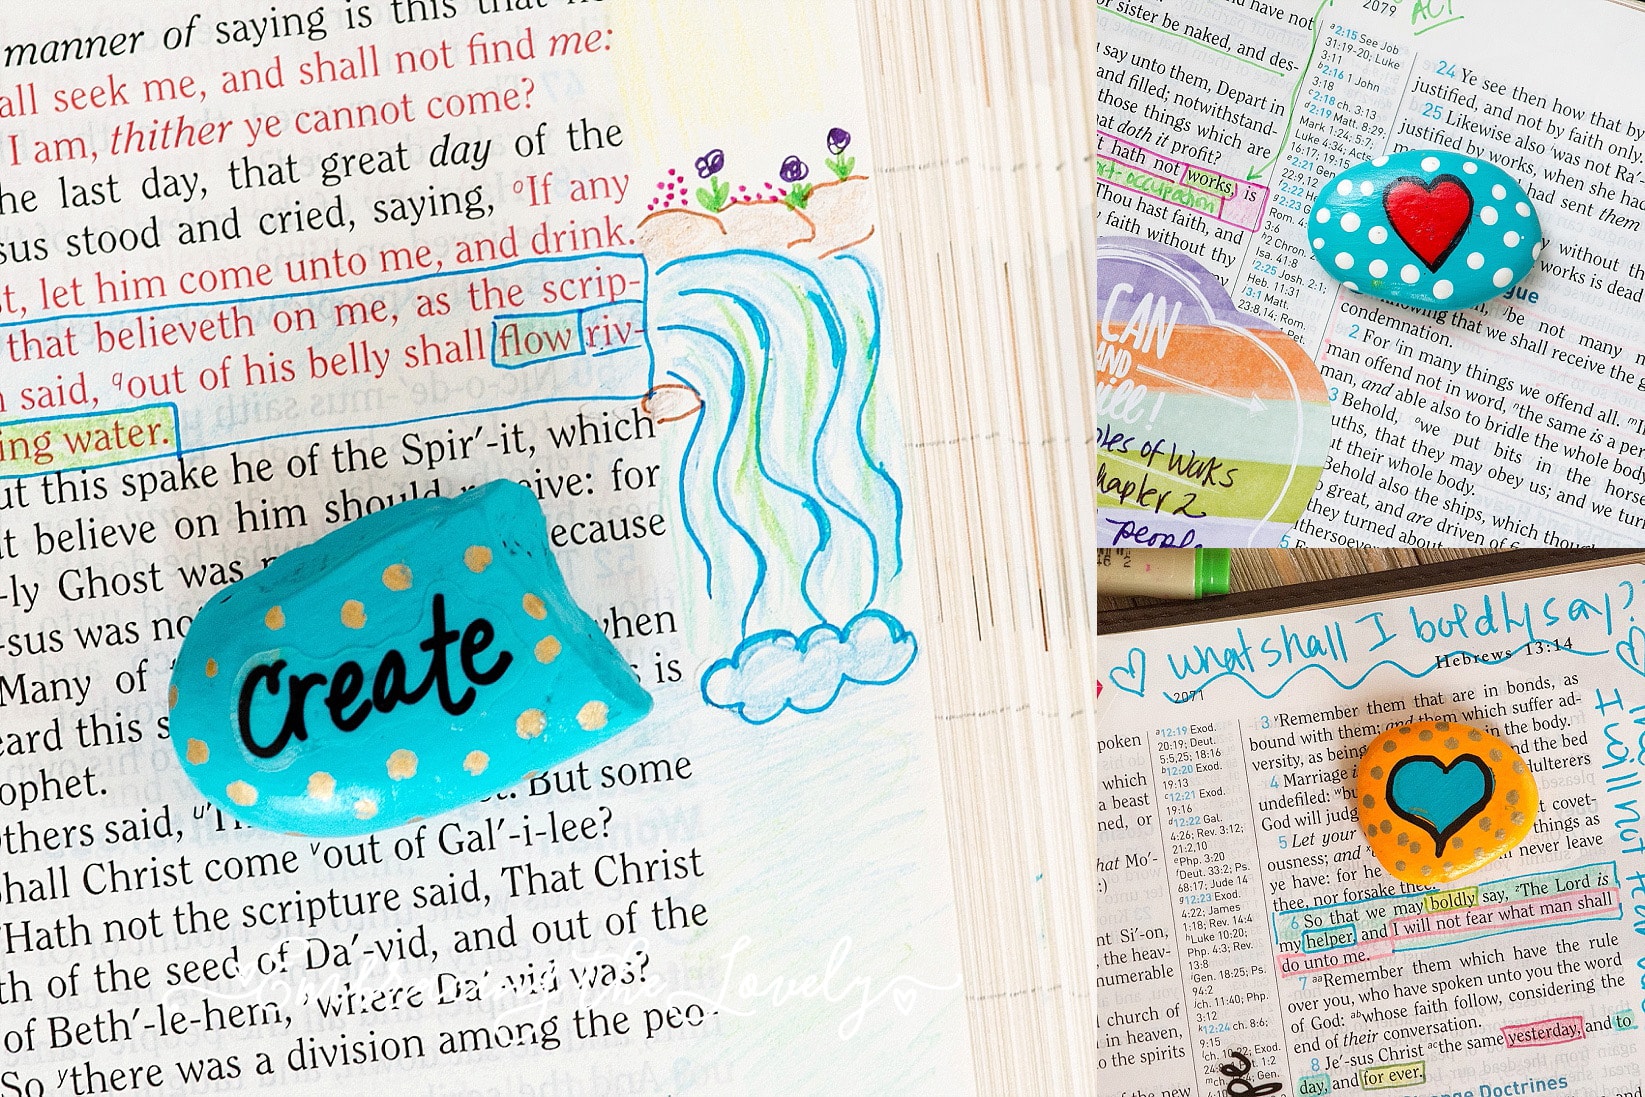 manner of saying is this that
all seek me, and shall not find me:
I am, thither ye cannot come?
he last day, that great day of the
sus stood and cried, saying, oIf any
st, let him come unto me, and drink.
that believeth on me, as the scrip-
said, qout of his belly shall flow riv-
ing water.
ut this spake he of the Spir′-it, which
t believe on him should receive: for
-ly Ghost was
ecause
-sus was no
when
Many of
is
eard this s
ophet.
But some
thers said,
hall Christ come vout of Gal′-i-lee?
Hath not the scripture said, That Christ
th of the seed of Da′-vid, and out of the
of Beth′-le-hem, where Da′-vid was?
So ythere was a division among the peo-
Create
Embracing The Lovely
2079
ACT
or sister be naked, and des-
say unto them, Depart in
and filled; notwithstand-
those things which are
at doth it profit?
t hath not works, is
Thou hast faith, and
faith without thy
CAN
AND
will!
les of Works
hapter 2
people
a2:15 See Job
31:19-20; Luke
3:11
b2:16 1 John
3:18
c2:18 ch. 3:13
d2:19 Matt. 8:29;
Mark 1:24; 5:7;
Luke 4:34; Acts
16:17; 19:15
e2:21 Gen.
22:9,12
f2:22 He
g2:23 G
Rom. 4:
3:6
h2 Chron.
Isa. 41:8
i2:25 Josh. 2:1;
Heb. 11:31
j3:1 Matt.
23:8,14; Rom.
24 Ye see then how that by
justified, and not by faith only.
25 Likewise also was not Ra′-
justified by works, when she ha
had sent them
y without th
works is dead
gue
be not many m
knowing that we shall receive the g
condemnation.
2 For in many things we offend all.
man offend not in word, the same is a per
man, and able also to bridle the whole body
3 Behold, we put bits in the horse
uths, that they may obey us; and we turn
ut their whole body.
Behold also the ships, which thoug
o great, and are driven of
they turned about
ithersoever
what shall I boldly say?
Hebrews 13:14
2071
I will not fear
spoken
which
a beast
ned, or
hat Mo′-
nt Si′-on,
the heav-
numerable
church of
in heaven,
o the spirits
of the new
a12:19 Exod.
20:19; Deut.
5:5,25; 18:16
b12:20 Exod.
19:13
c12:21 Exod.
19:16
d12:22 Gal.
4:26; Rev. 3:12;
21:2,10
ePhp. 3:20
fDeut. 33:2; Ps.
68:17; Jude 14
g12:23 Exod.
4:22; James
1:18; Rev. 14:4
hLuke 10:20;
Php. 4:3; Rev.
13:8
iGen. 18:25; Ps.
94:2
jch. 11:40; Php.
3:12
k12:24 ch. 8:6;
3 Remember them that are in bonds, as
bound with them; and them which suffer ad-
versity, as being
in the body.
4 Marriage
nd the bed
undefiled:
dulterers
God will judg
5 Let your
t covet-
ousness; and
things as
ye have: for he
never leave
thee, nor forsake thee.
6 So that we may boldly say, zThe Lord is
my helper, and I will not fear what man shall
do unto me.
7 aaRemember them which have the rule
over you, who have spoken unto you the word
of God: abwhose faith follow, considering the
end of their conversation.
8 Je′-sus Christ acthe same yesterday, and to
day, and for ever.
Doctrines